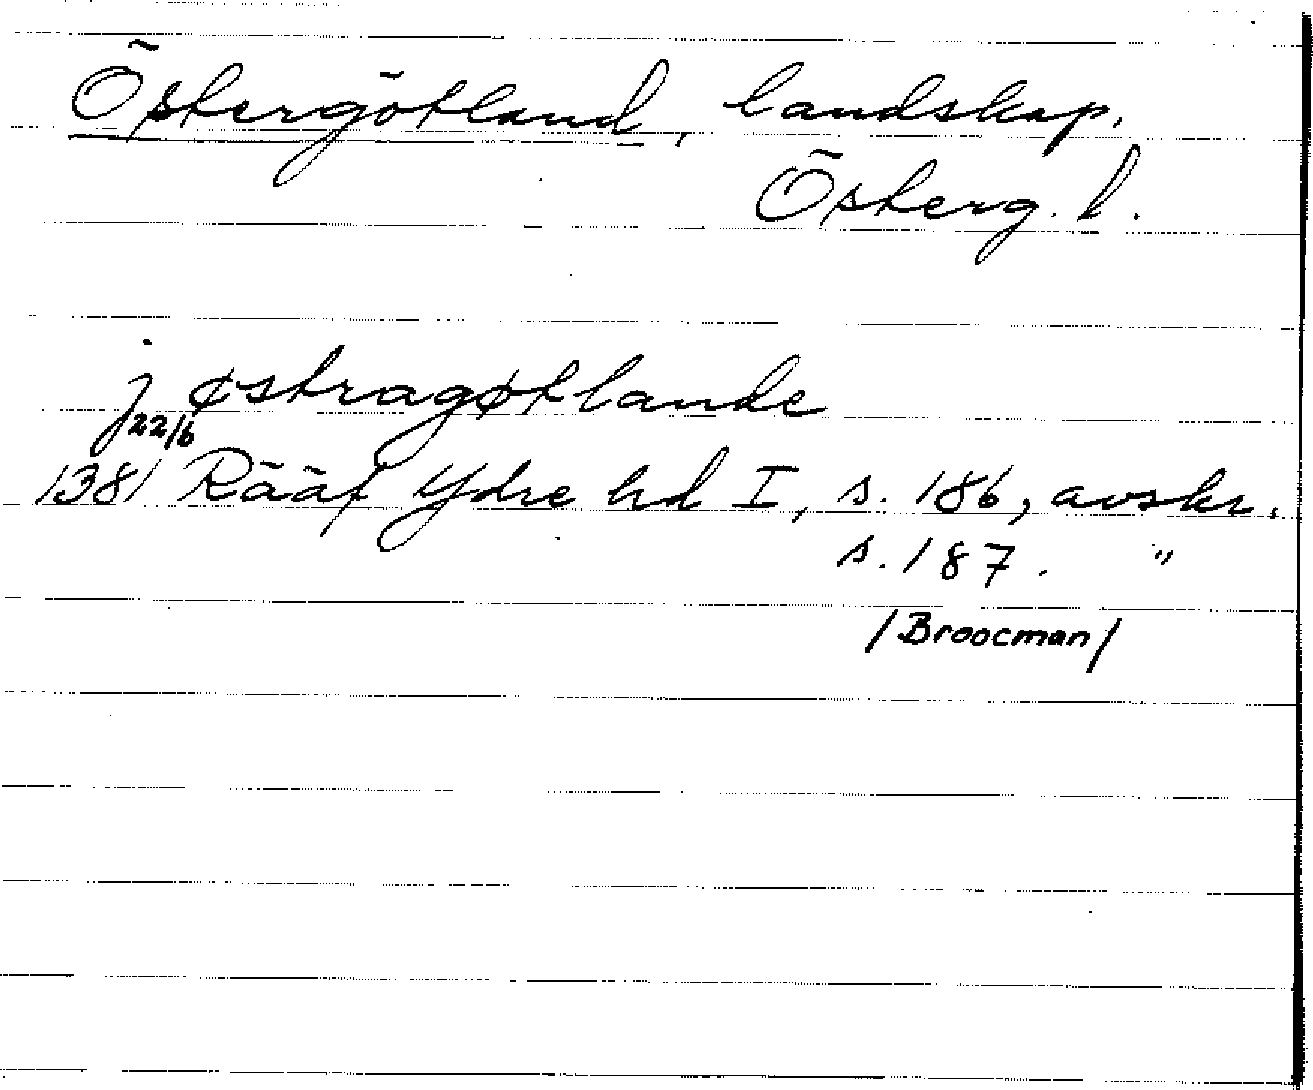 Östergötland, landskap.
Österg. l.
j østragøtlande
22/6
1381 Rääf Ydre hd I, s. 186, avskr.
s. 187. "
/Broocman/